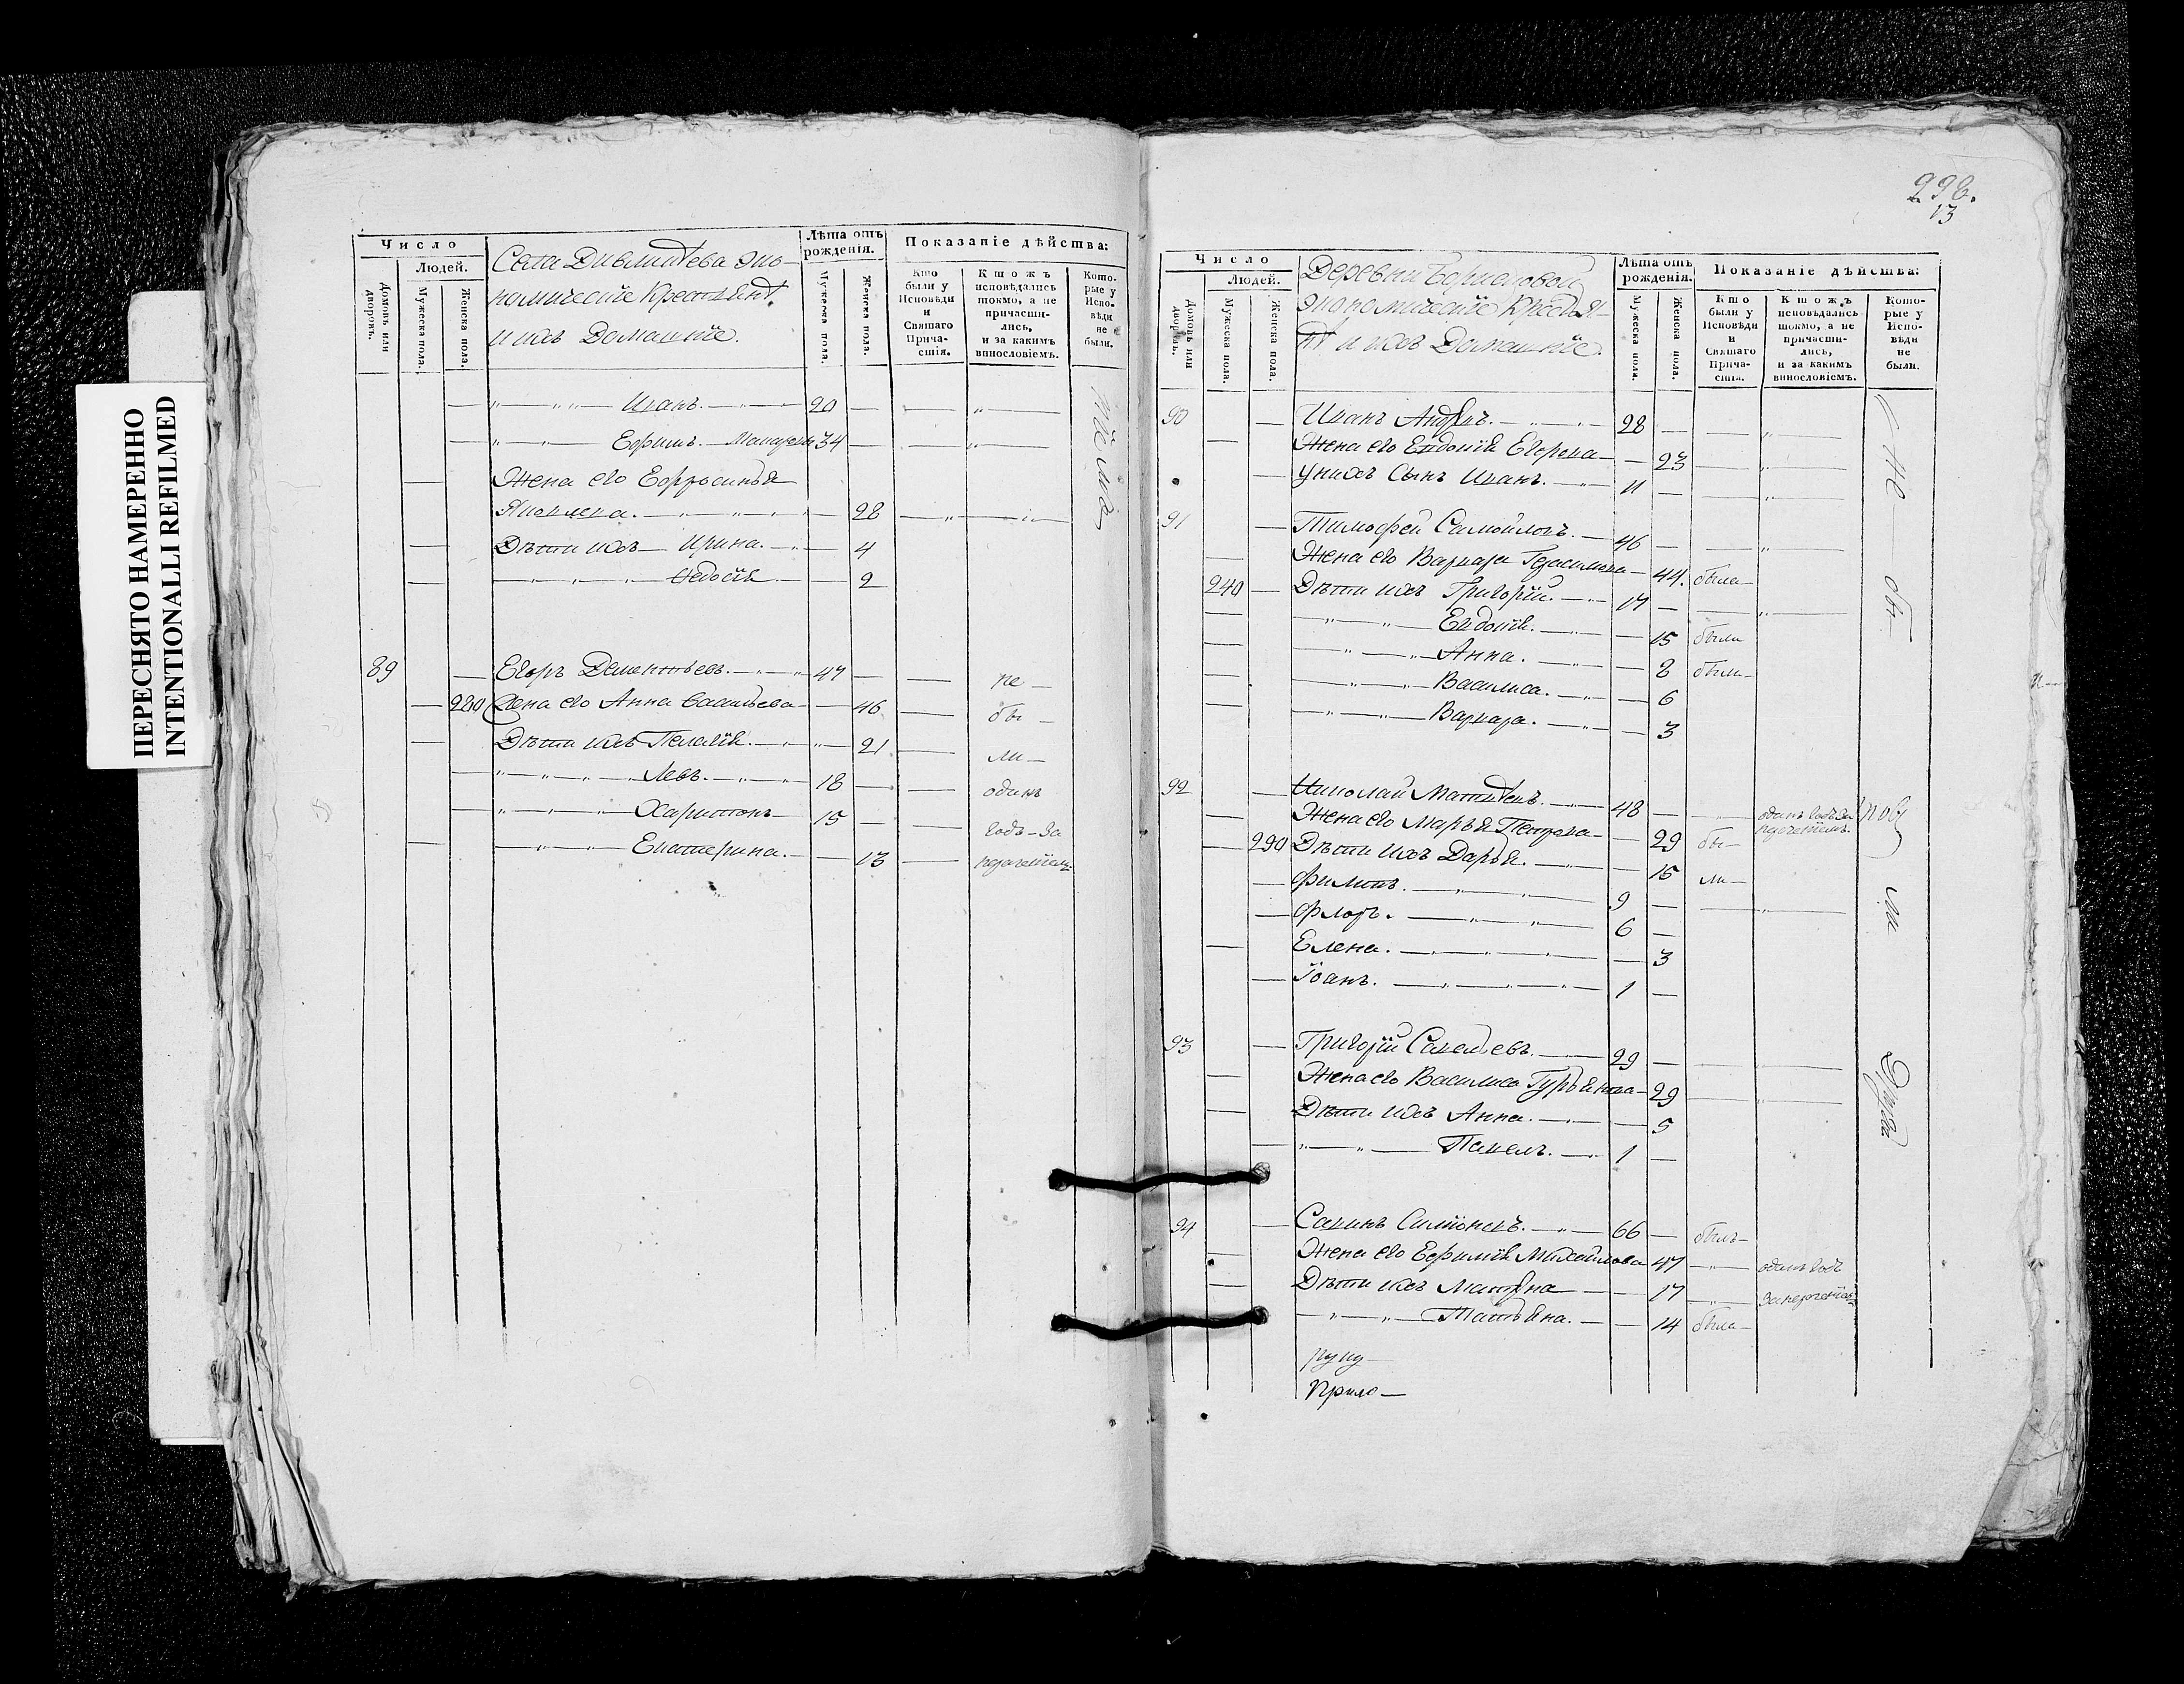 ПЕРЕСНЯТО НАМЕРЕННО
INTENTIONALLI REFILMED
Число
Людей.
Домовъ или дворовъ.
Мужеска пола.
Женска пола.
Села эко-
номическіе Крестьянѣ
и ихъ Домашніе.
Лѣта отъ рожденія.
Мужеска пола.
Женска пола.
Показаніе дѣйства:
Кто были у Исповѣди и Святаго Прича-стія.
Кто жъ исповѣдались токмо, а не причасти-лись, и за какимъ винословіемъ.
Кото-рые у Испо-вѣди не были.
Иванъ. 20
Ефимъ. 34
Жена его Ефросинья
Яковлева. 28
Дѣти ихъ Ирина. 4
Ѳедосія 2
89 Егоръ Дементьевъ. 47 не
280 Жена его Анна Васильева 46 бы
Дѣти ихъ Пелагія. 21 ли
Левъ. 18 одинъ
Харитонъ 15 годъ за
Екатерина. 13 нераченіемъ
298.
13
Число
Людей.
Домовъ или дворовъ.
Мужеска пола.
Женска пола.
Деревни Борисовой
экономическіе Крестья-
нѣ и ихъ Домашніе.
Лѣта отъ рожденія.
Мужеска пола.
Женска пола.
Показаніе дѣйства:
Кто были у Исповѣди и Святаго Прича-стія.
Кто жъ исповѣдались токмо, а не причасти-лись, и за какимъ винословіемъ.
Кото-рые у Испо-вѣди не были.
90 Иванъ Андреевъ. 28
Жена его Евдокія Егорова 23
У нихъ Сынъ Иванъ. 11
91 Тимофей Самойловъ. 46
Жена его Варвара Герасимова 44. была
240 Дѣти ихъ Григорій. 17
Евдокія. 15 была
Анна. 8 была
Василиса. 6
Варвара. 3
92 Николай Матвѣевъ. 48 одинъ годъ за нераченіемъ.
Жена его Марья Петрова 29 бы
290 Дѣти ихъ Дарья. 15 ли
Филипъ. 9
Флоръ. 6
Елена. 3
Іоанъ. 1
93 Григорій Савельевъ. 29
Жена его Василиса Гурьянова 29
Дѣти ихъ Анна. 5
Павелъ. 1
94 Савинъ Симіоновъ. 66 былъ
Жена его Ефимія Михайлова 47 одинъ годъ
Дѣти ихъ Матрена 17 за нераченіемъ
Татьяна. 14 была
не
бы
ли
руку
Прило